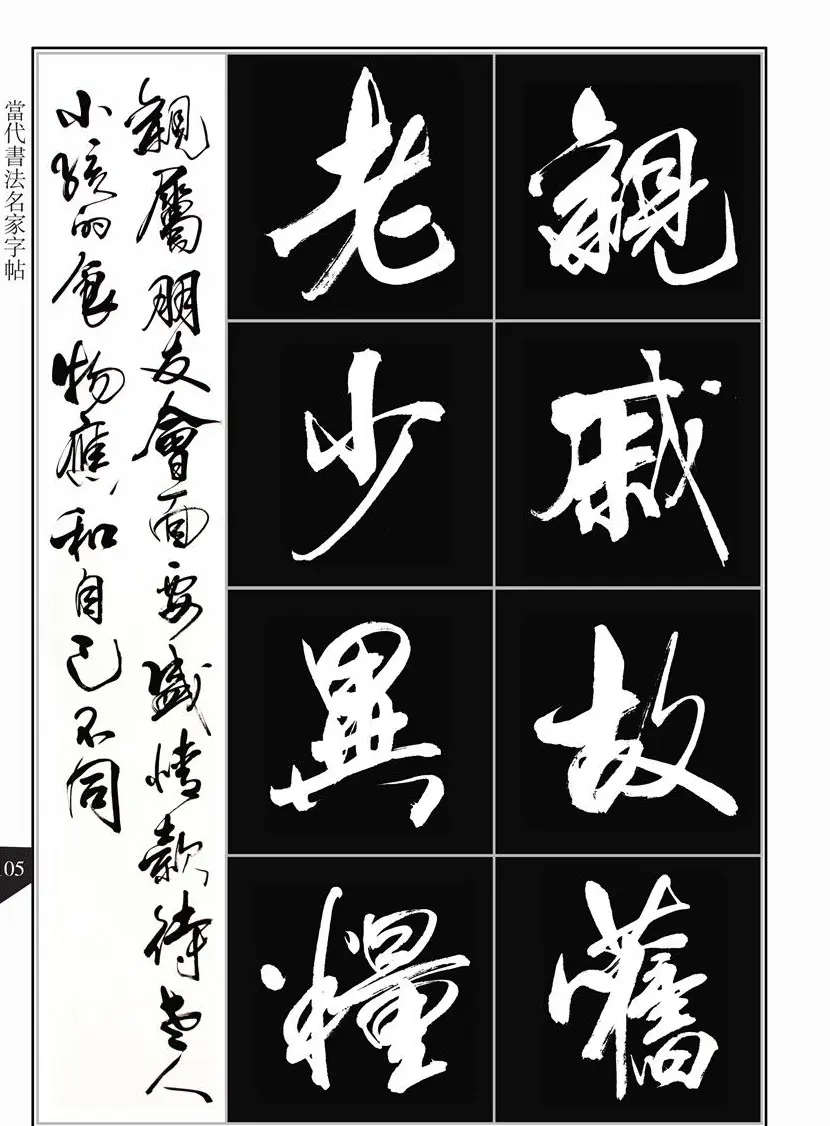 親戚故舊
老少異糧
親屬朋友會面要盛情款待老人
小孩的食物應和自己不同
當代書法名家字帖
105